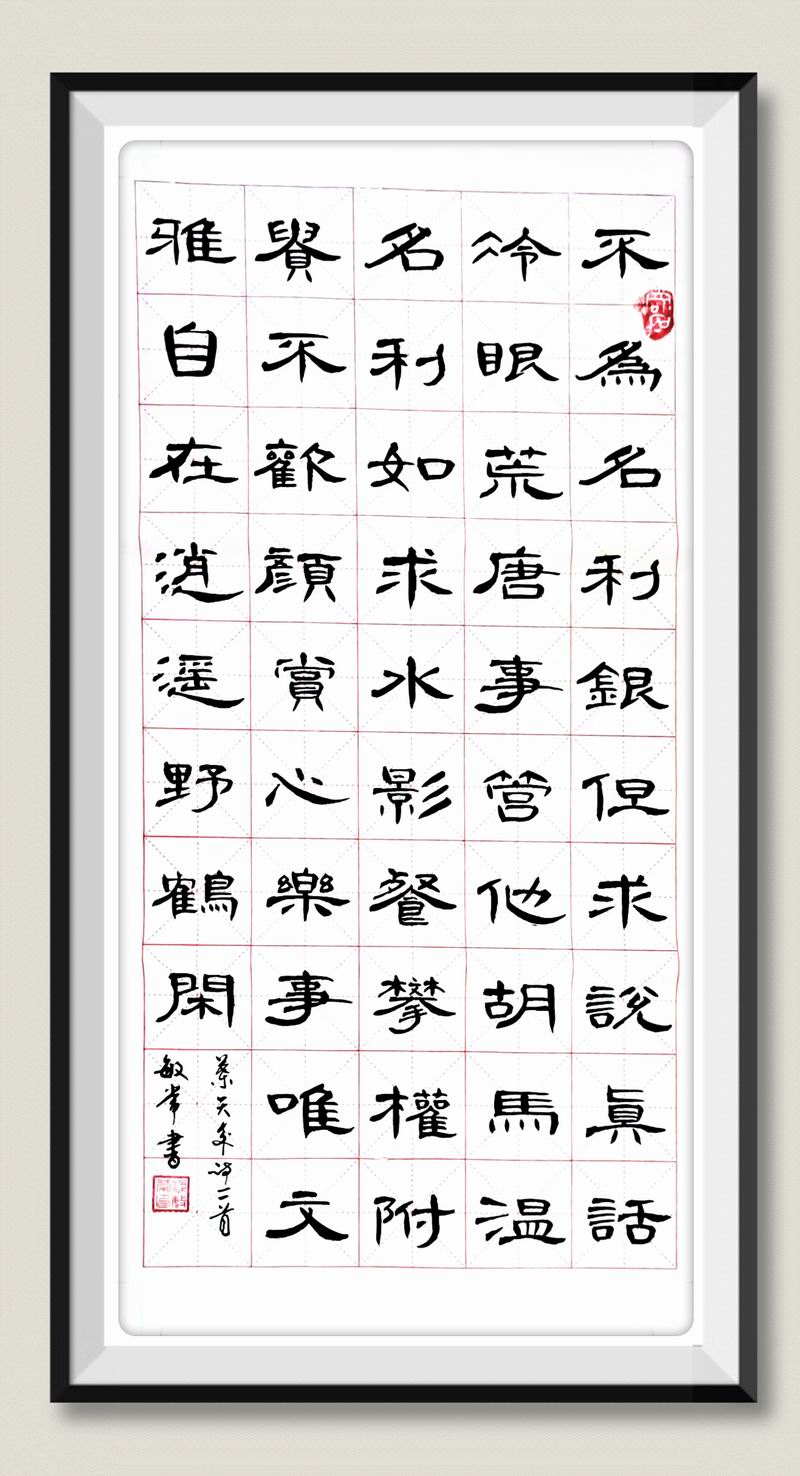 不為名利銀但求說真話
冷眼荒唐事管他胡馬溫
名利如求水影餐攀權附
貴不歡顏賞心樂事唯文
雅自在逍遙野鶴閑
诗二首
敏常書